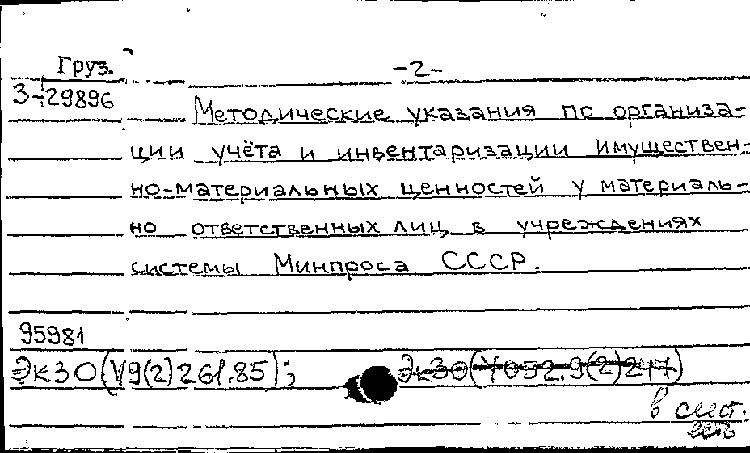 Груз. -2-
3-29896
Методические указания по организа-
ции учёта и инвентаризации имуществен-
но-материальных ценностей у материаль-
но ответственных лиц в учреждениях
системы Минпроса СССР.
95981
ЭкЗО(У9(2)261.85); ЭкЗО(У052.9(2)247)
в сист.